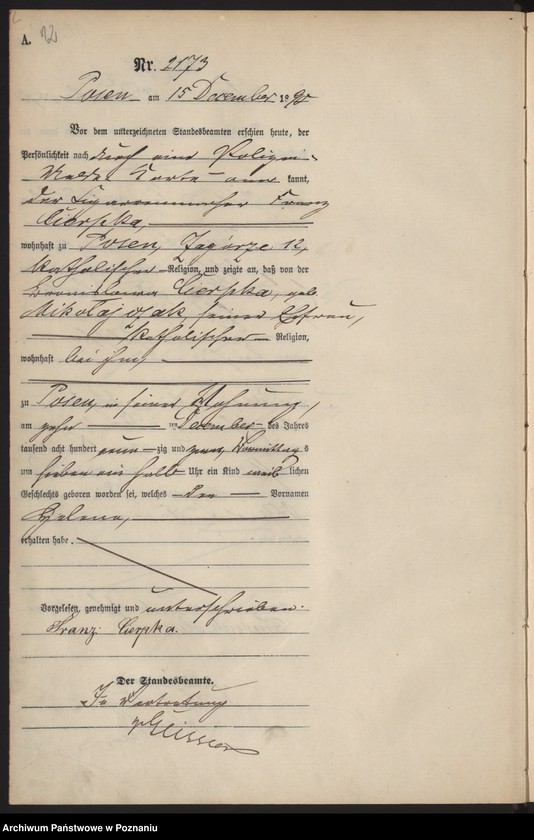 A.
Nr. 2173
Posen am 15 December 189
Vor dem unterzeichneten Standesbeamten erschien heute, der
Persönlichkeit nach durch eine Polizei-
Melde Karte aner kannt,
der Cigarrenmacher Franz
Cierpka,
wohnhaft zu Posen, Zagorze 12,
katholischer Religion, und zeigte an, daß von der
Bronislawa Cierpka, geb.
Mikołajczak, seiner Ehefrau,
katholischer Religion,
wohnhaft bei ihm,
zu Posen, in seiner Wohnung,
am zehn ten December des Jahres
tausend acht hundert neun zig und Vormittag s
um sieben ein halb Uhr ein Kind weib lichen
Geschlechts geboren worden sei, welches den Vornamen
Helena,
erhalten habe.
Vorgelesen, genehmigt und unterschrieben.
Franz Cierpka.
Der Standesbeamte.
In Vertretung
Archiwum Państwowe w Poznaniu